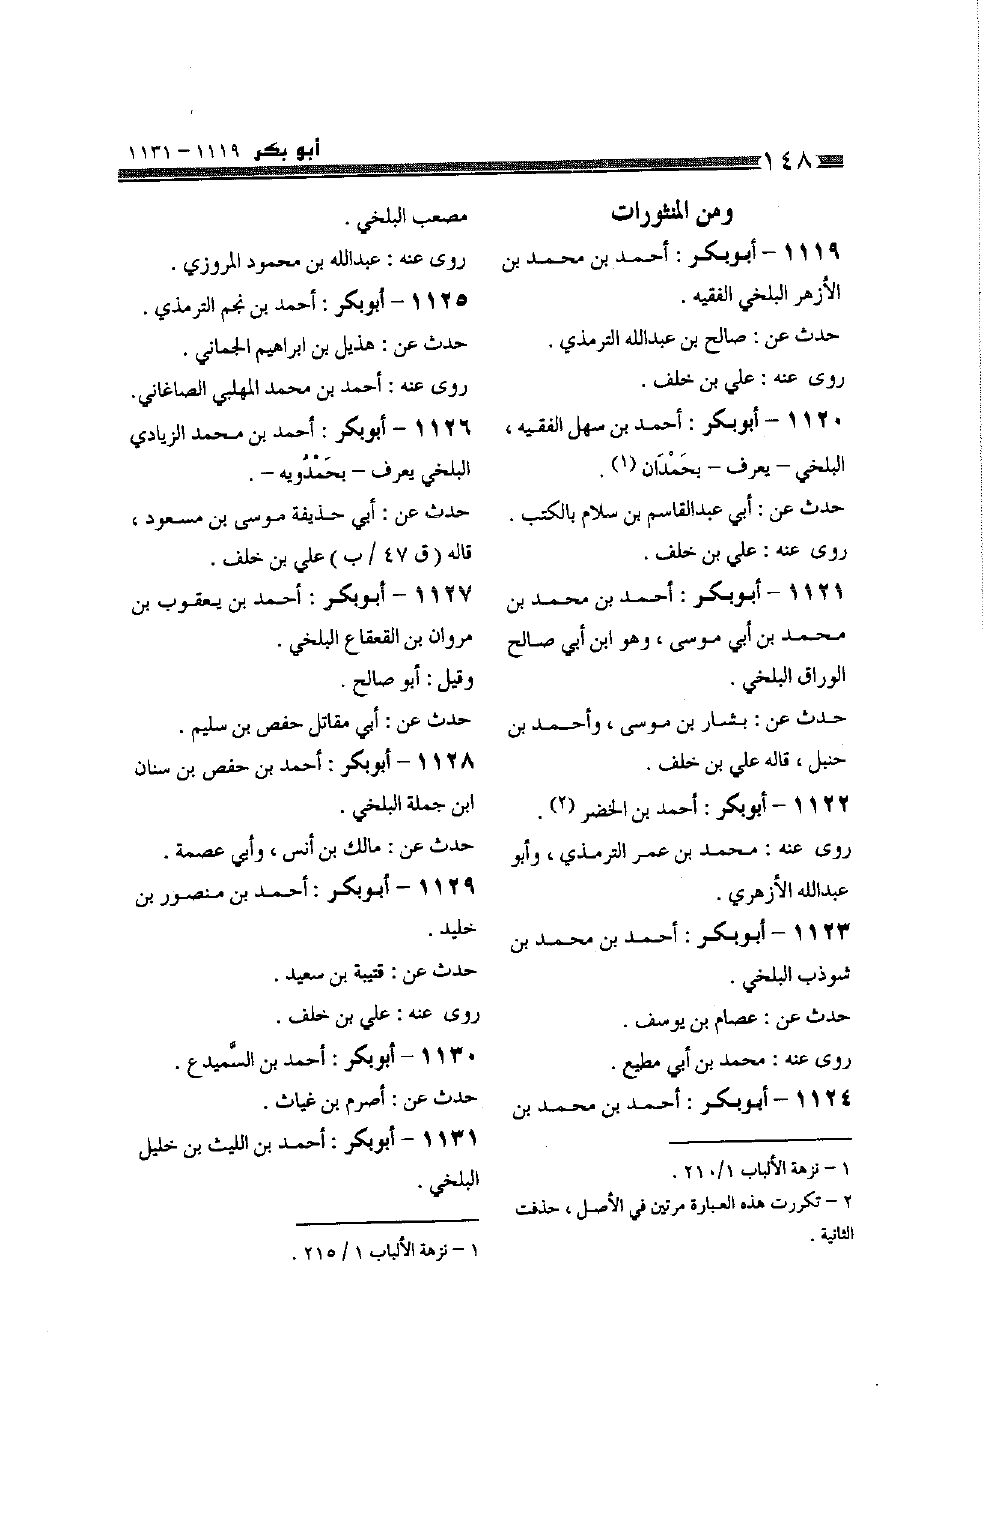 ١٤٨
أبو بكر ١١١٩ - ١١٣١
ومن المنثورات
١١١٩ - أبوبكر : أحمد بن محمد بن
الأزهر البلخي الفقيه .
حدث عن : صالح بن عبدالله الترمذي .
روى عنه : علي بن خلف .
١١٢٠ - أبوبكر : أحمد بن سهل الفقيه ،
البلخي - يعرف - بحَمْدَان (١) .
حدث عن : أبي عبدالقاسم بن سلام بالكتب .
روى عنه : علي بن خلف .
١١٢١ - أبوبكر : أحمد بن محمد بن
محمد بن أبي موسى ، وهو ابن أبي صالح
الوراق البلخي .
حدث عن : بشار بن موسى ، وأحمد بن
حنبل ، قاله علي بن خلف .
١١٢٢ - أبوبكر : أحمد بن الخضر (٢) .
روى عنه : محمد بن عمر الترمذي ، وأبو
عبدالله الأزهري .
١١٢٣ - أبوبكر : أحمد بن محمد بن
شوذب البلخي .
حدث عن : عصام بن يوسف .
روى عنه : محمد بن أبي مطيع .
١١٢٤ - أبوبكر : أحمد بن محمد بن
١ - نزهة الألباب ٢١٠/١ .
٢ - تكررت هذه العبارة مرتين في الأصل ، حذفت
الثانية .
مصعب البلخي .
روى عنه : عبدالله بن محمود المروزي .
١١٢٥ - أبوبكر : أحمد بن نجم الترمذي .
حدث عن : هذيل بن ابراهيم الجماني .
روى عنه : أحمد بن محمد المهلبي الصاغاني.
١١٢٦ - أبوبكر : أحمد بن محمد الزيادي
البلخي يعرف - بحَمْدُويه - .
حدث عن : أبي حذيفة موسى بن مسعود ،
قاله ( ق ٤٧ / ب ) علي بن خلف .
١١٢٧ - أبوبكر : أحمد بن يعقوب بن
مروان بن القعقاع البلخي .
وقيل : أبو صالح .
حدث عن : أبي مقاتل حفص بن سليم .
١١٢٨ - أبوبكر : أحمد بن حفص بن سنان
ابن جملة البلخي .
حدث عن : مالك بن أنس ، وأبي عصمة .
١١٢٩ - أبوبكر : أحمد بن منصور بن
خليد .
حدث عن : قتيبة بن سعيد .
روى عنه : علي بن خلف .
١١٣٠ - أبوبكر : أحمد بن السَّميدع .
حدث عن : أصرم بن غياث .
١١٣١ - أبوبكر : أحمد بن الليث بن خليل
البلخي .
١ - نزهة الألباب ١ / ٢١٥ .